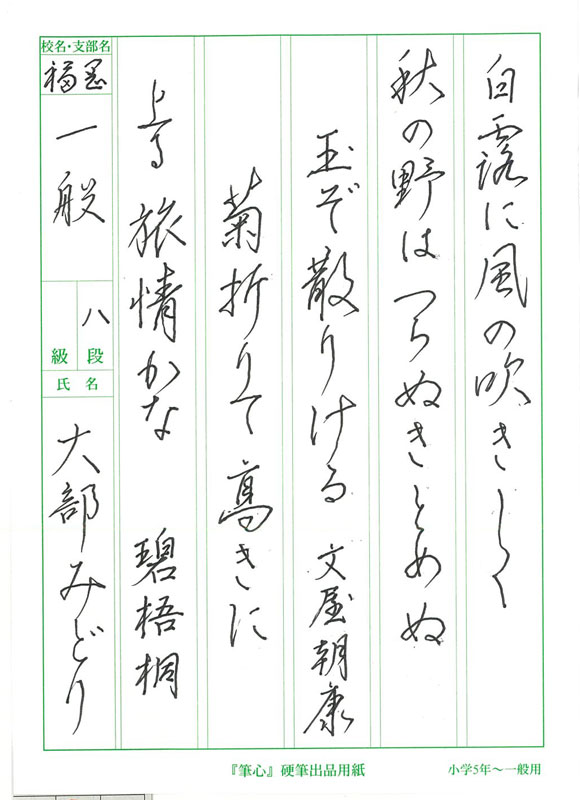 白露に風の吹きしく
秋の野はつらぬきとめぬ
玉ぞ散りける 文屋朝康
菊折りて高きに
上る旅情かな 碧梧桐
校名・支部名
福岡
一般
八段
級
氏名
大部みどり
『筆心』硬筆出品用紙
小学5年～一般用